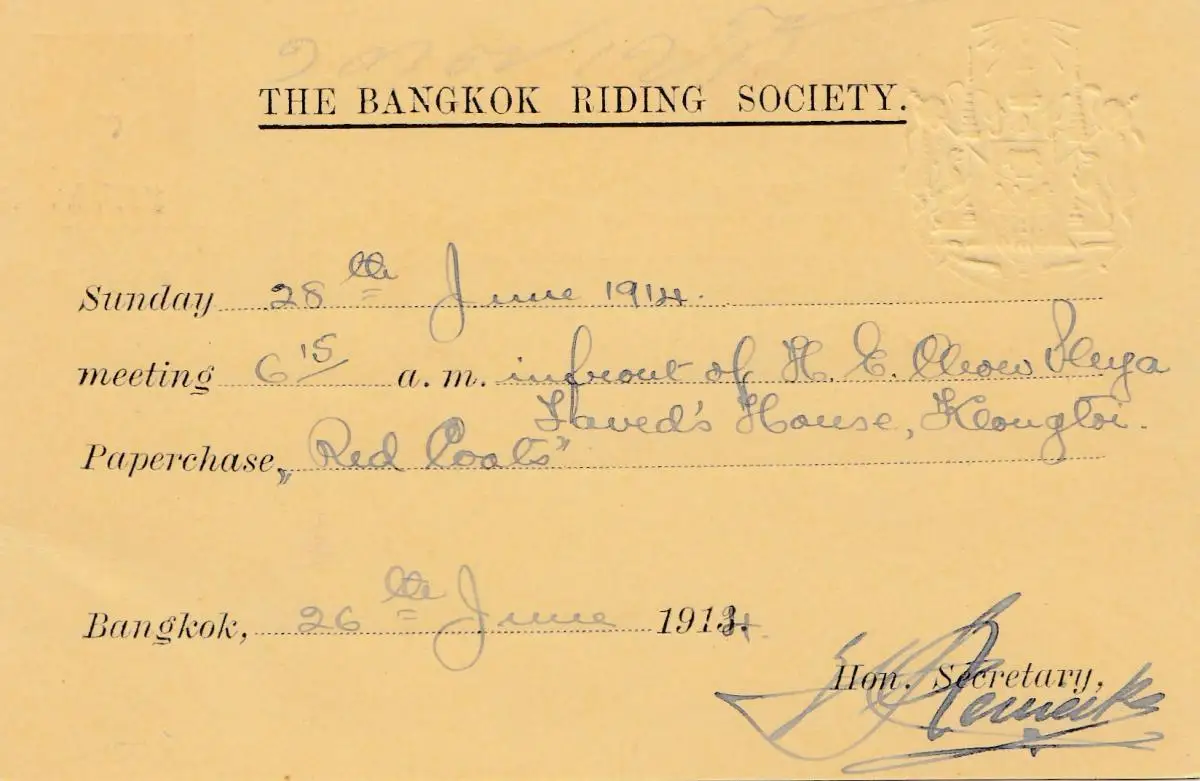 THE BANGKOK RIDING SOCIETY.
Sunday 28th June 1914.
meeting 6 15 a. m. infront of H. E. Chow Phya
House, Klongtoi.
Paperchase „Red Coats”
Bangkok, 26th June 1914.
Hon. Secretary,